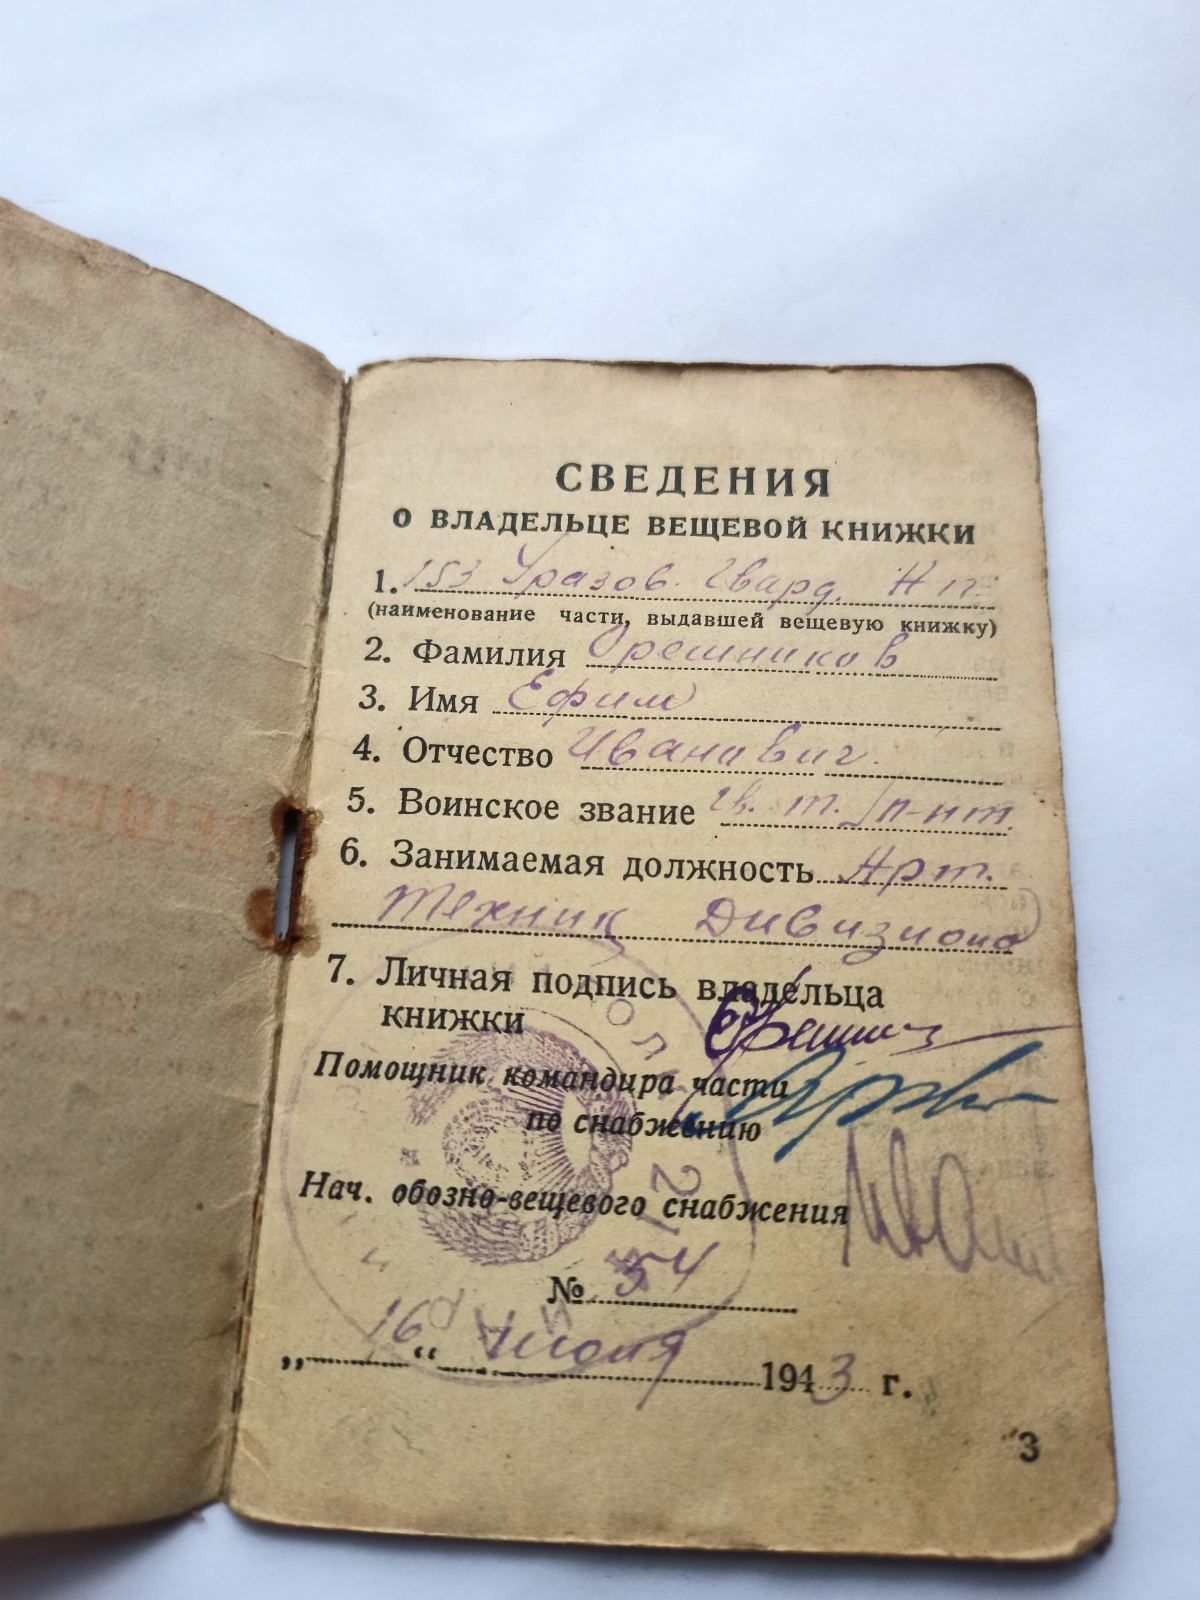 СВЕДЕНИЯ
О ВЛАДЕЛЬЦЕ ВЕЩЕВОЙ КНИЖКИ
1. 153 Гвард. п.
(наименование части, выдавшей вещевую книжку)
2. Фамилия Орешников
3. Имя Ефим
4. Отчество Иванович.
5. Воинское звание Гв. т.
6. Занимаемая должность Арт.
техник Дивизиона
7. Личная подпись владельца
книжки
Помощник командира части
по снабжению
Нач. обозно-вещевого снабжения
№ 54
„ 16 “ Июня 1943 г.
3